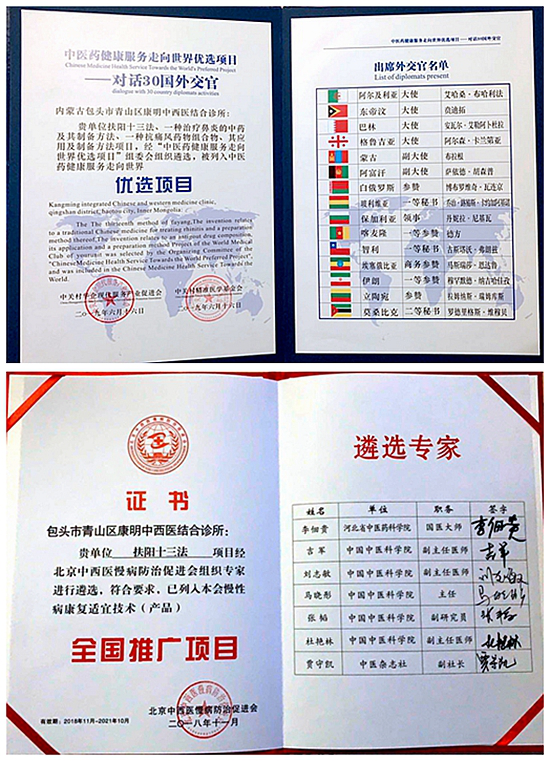 中医药健康服务走向世界优选项目
Chinese Medicine Health Service Towards the World's Preferred Project
——对话30国外交官
dialogue with 30 country diplomats activities
内蒙古包头市青山区康明中西医结合诊所：
贵单位扶阳十三法、一种治疗鼻炎的中药
及其制备方法、一种抗痛风药物组合物、其应
用及制备方法项目，经“中医药健康服务走向
世界优选项目”组委会组织遴选，被列入中医
药健康服务走向世界
优选项目
Kangming integrated Chinese and western medicine clinic,
qingshan district, baotou city, Inner Mongolia:
The The thirteenth method of fuyang,The invention relates
to a traditional Chinese medicine for treating rhinitis and a preparation
method thereof,The invention relates to an antigout drug composition,
its application and a preparation method Project of the World Medical
Club of your unit was selected by the Organizing Committee of the
"Chinese Medicine Health Service Towards the World Preferred Project",
and was included in the Chinese Medicine Health Service Towards the
World.
二〇一九年六月十六日
二〇一九年六月十六日
中医药健康服务走向世界优选项目——对话30国外交官
出席外交官名单
List of diplomats present
阿尔及利亚 大使 艾哈桑·布哈利法
东帝汶 大使 莫迪拓
巴林 大使 安瓦尔·艾勒阿卜杜拉
格鲁吉亚 大使 阿尔森·卡兰第亚
蒙古 副大使 布拉根
阿富汗 副大使 萨依德·胡森普
白俄罗斯 参赞 博布罗维奇·瓦连京
玻利维亚 一等秘书
保加利亚 领事 丹妮拉·尼基瓦
喀麦隆 一等参赞 德方
智利 一等秘书 古斯塔沃·弗朗兹
埃塞俄比亚 商务参赞
伊朗 一等参赞
立陶宛 参赞
莫桑比克 二等秘书 罗德里格斯·维穆贝
证书
包头市青山区康明中西医结合诊所：
贵单位 扶阳十三法 项目经
北京中西医慢病防治促进会组织专家
进行遴选，符合要求，已列入本会慢性
病康复适宜技术（产品）
全国推广项目
北京中西医慢病防治促进会
有效期：2018年11月-2021年10月
二〇一八年十一月
遴选专家
姓名 单位 职务 签字
李佃贵 河北省中医药科学院 国医大师 李佃贵
吉军 中国中医科学院 副主任医师 吉军
刘志敏 中国中医科学院 副主任医师
马晓彤 中国中医科学院 主任
张韬 中国中医科学院 副研究员
杜艳林 中国中医科学院 副主任医师 杜艳林
贾守凯 中医杂志社 副社长